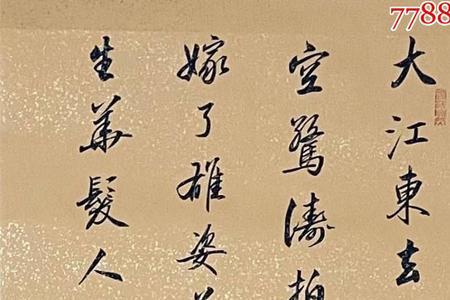 7788
大江東去
空驚濤拍
嫁了雄姿英
生華髮人